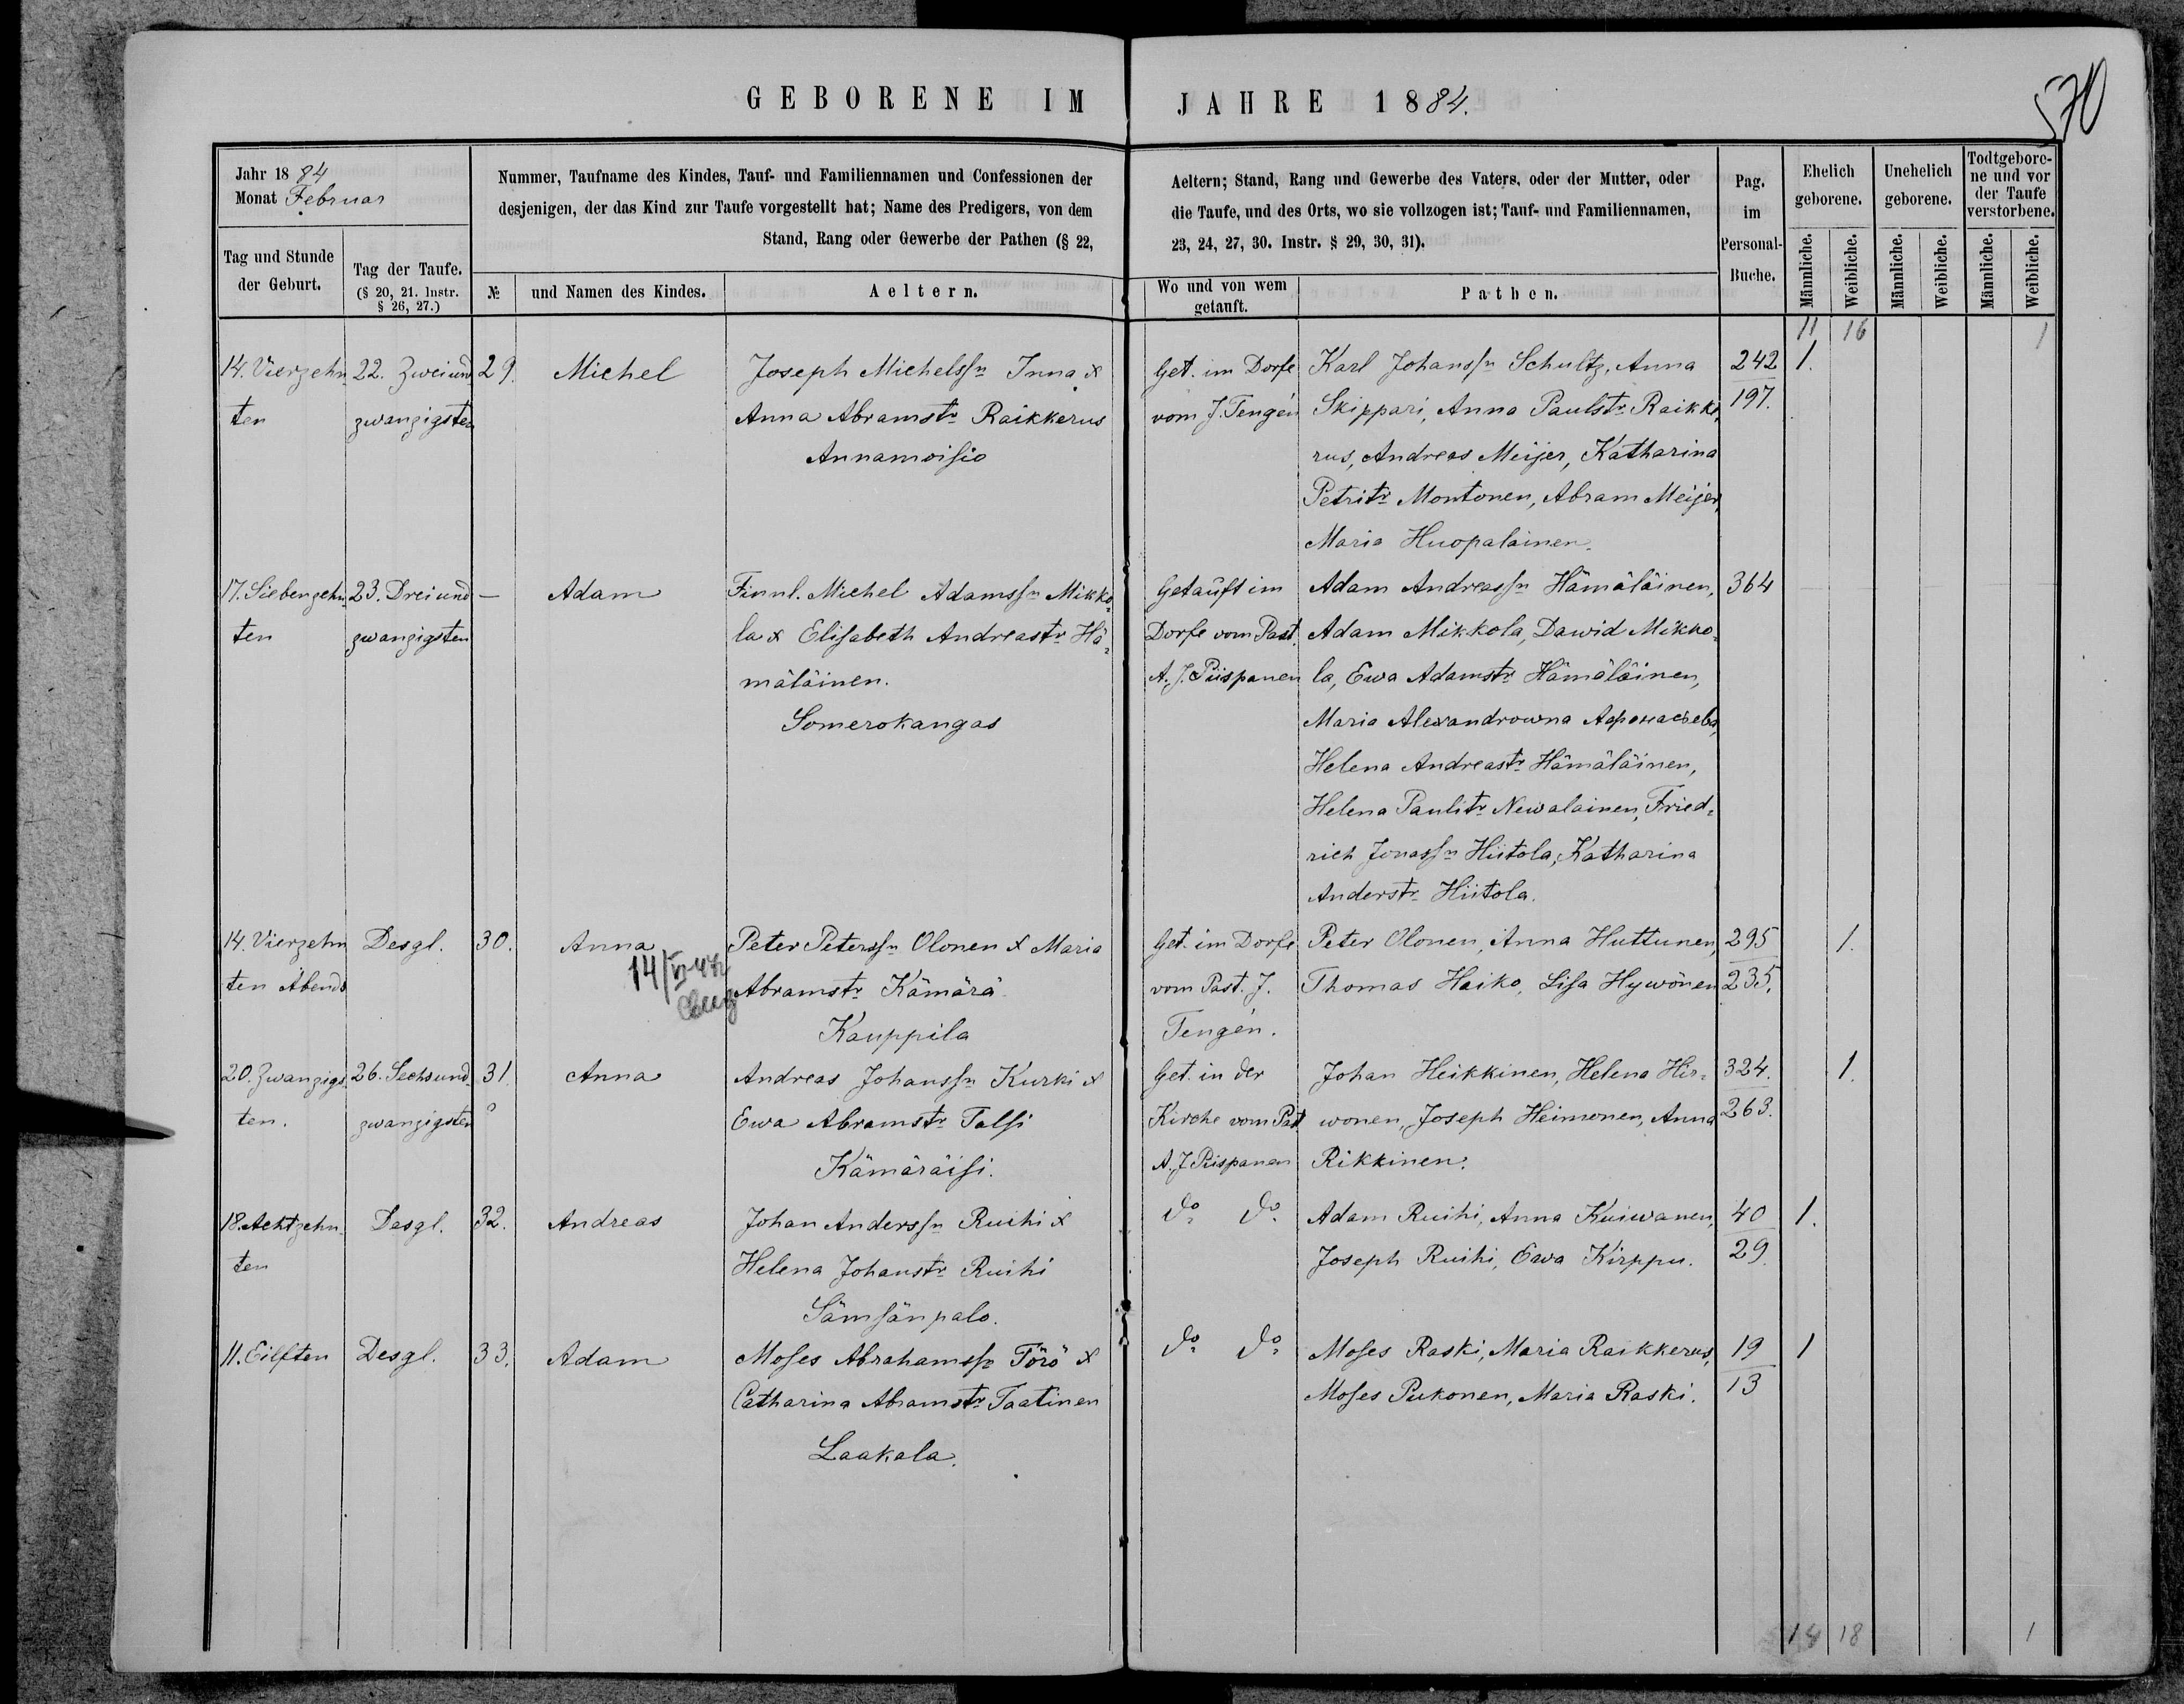 GEBORENE IM JAHRE 1884.
570
Jahr 1884
Monat Februar
Nummer, Taufname des Kindes, Tauf- und Familiennamen und Confessionen der
desjenigen, der das Kind zur Taufe vorgestellt hat; Name des Predigers, von dem
Stand, Rang oder Gewerbe der Pathen (§ 22,
Aeltern; Stand, Rang und Gewerbe des Vaters, oder der Mutter, oder
die Taufe, und des Orts, wo sie vollzogen ist; Tauf- und Familiennamen,
23, 24, 27, 30. Instr. § 29, 30, 31).
Pag.
im
Personal-
Buche.
Ehelich
geborene.
Unehelich
geborene.
Todtgebore-
ne und vor
der Taufe
verstorbene.
Tag und Stunde
der Geburt.
Tag der Taufe.
(§ 20, 21. Instr.
§ 26, 27.)
№
und Namen des Kindes.
Aeltern.
Wo und von wem
getauft.
Pathen.
Männliche.
Weibliche.
Männliche.
Weibliche.
Männliche.
Weibliche.
11 16 1
14. Vierzehn 22. Zweiund 29. Michel Joseph Michelssn Inna & Get. im Dorfe Karl Johanssn Schultz, Anna 242 1.
ten zwanzigsten Anna Abramstr Raikkerus vom J. Tengén Skippari, Anna Paulstr Raikke, 197.
Annamoisio rus, Andreas Meijer, Katharina
Petritr Montonen, Abram Meijer,
Maria Huopalainen.
17. Siebenzehn 23. Dreiund — Adam Finnl. Michel Adamssn Mikko- Getauft im Adam Andreassn Hämäläinen, 364
ten zwanzigsten la & Elisabeth Andreastr Hä- Dorfe vom Past. Adam Mikkola, Dawid Mikko-
mäläinen. A. J. Piispanen la, Ewa Adamstr Hämäläinen,
Somerokangas Maria Alexandrowna Афонасьева,
Helena Andreastr Hämäläinen,
Helena Paulitr Newalainen, Fried-
rich Jonassn Hiitola, Katharina
Anderstr Hiitola.
14. Vierzehn Desgl. 30. Anna Peter Peterssn Olonen & Maria Get. im Dorfe Peter Olonen, Anna Huttunen, 295 1.
ten Abends 14/VI-47 Abramstr Kämärä vom Past. J. Thomas Haiko, Lisa Hywönen 235.
Kauppila Tengén.
20. Zwanzigs 26. Sechsund 31. Anna Andreas Johanssn Kurki & Get. in der Johan Heikkinen, Helena Hir- 324. 1.
ten. zwanzigsten Ewa Abramstr Talsi Kirche vom Past wonen, Joseph Heimonen, Anna 263.
Kämäräisi. A. J. Piispanen Rikkinen.
18. Achtzehn- Desgl. 32. Andreas Johan Anderssn Ruihi & do do Adam Ruihi, Anna Kuiwanen, 40 1.
ten Helena Johanstr Ruihi Joseph Ruihi, Ewa Kirppu. 29.
Sämsänpalo.
11. Eilften Desgl. 33. Adam Moses Abrahamssn Törö & do do Moses Raski, Maria Raikkerus, 19 1
Catharina Abramstr Taatinen Moses Pukonen, Maria Raski. 13
Laakala.
14 18 1